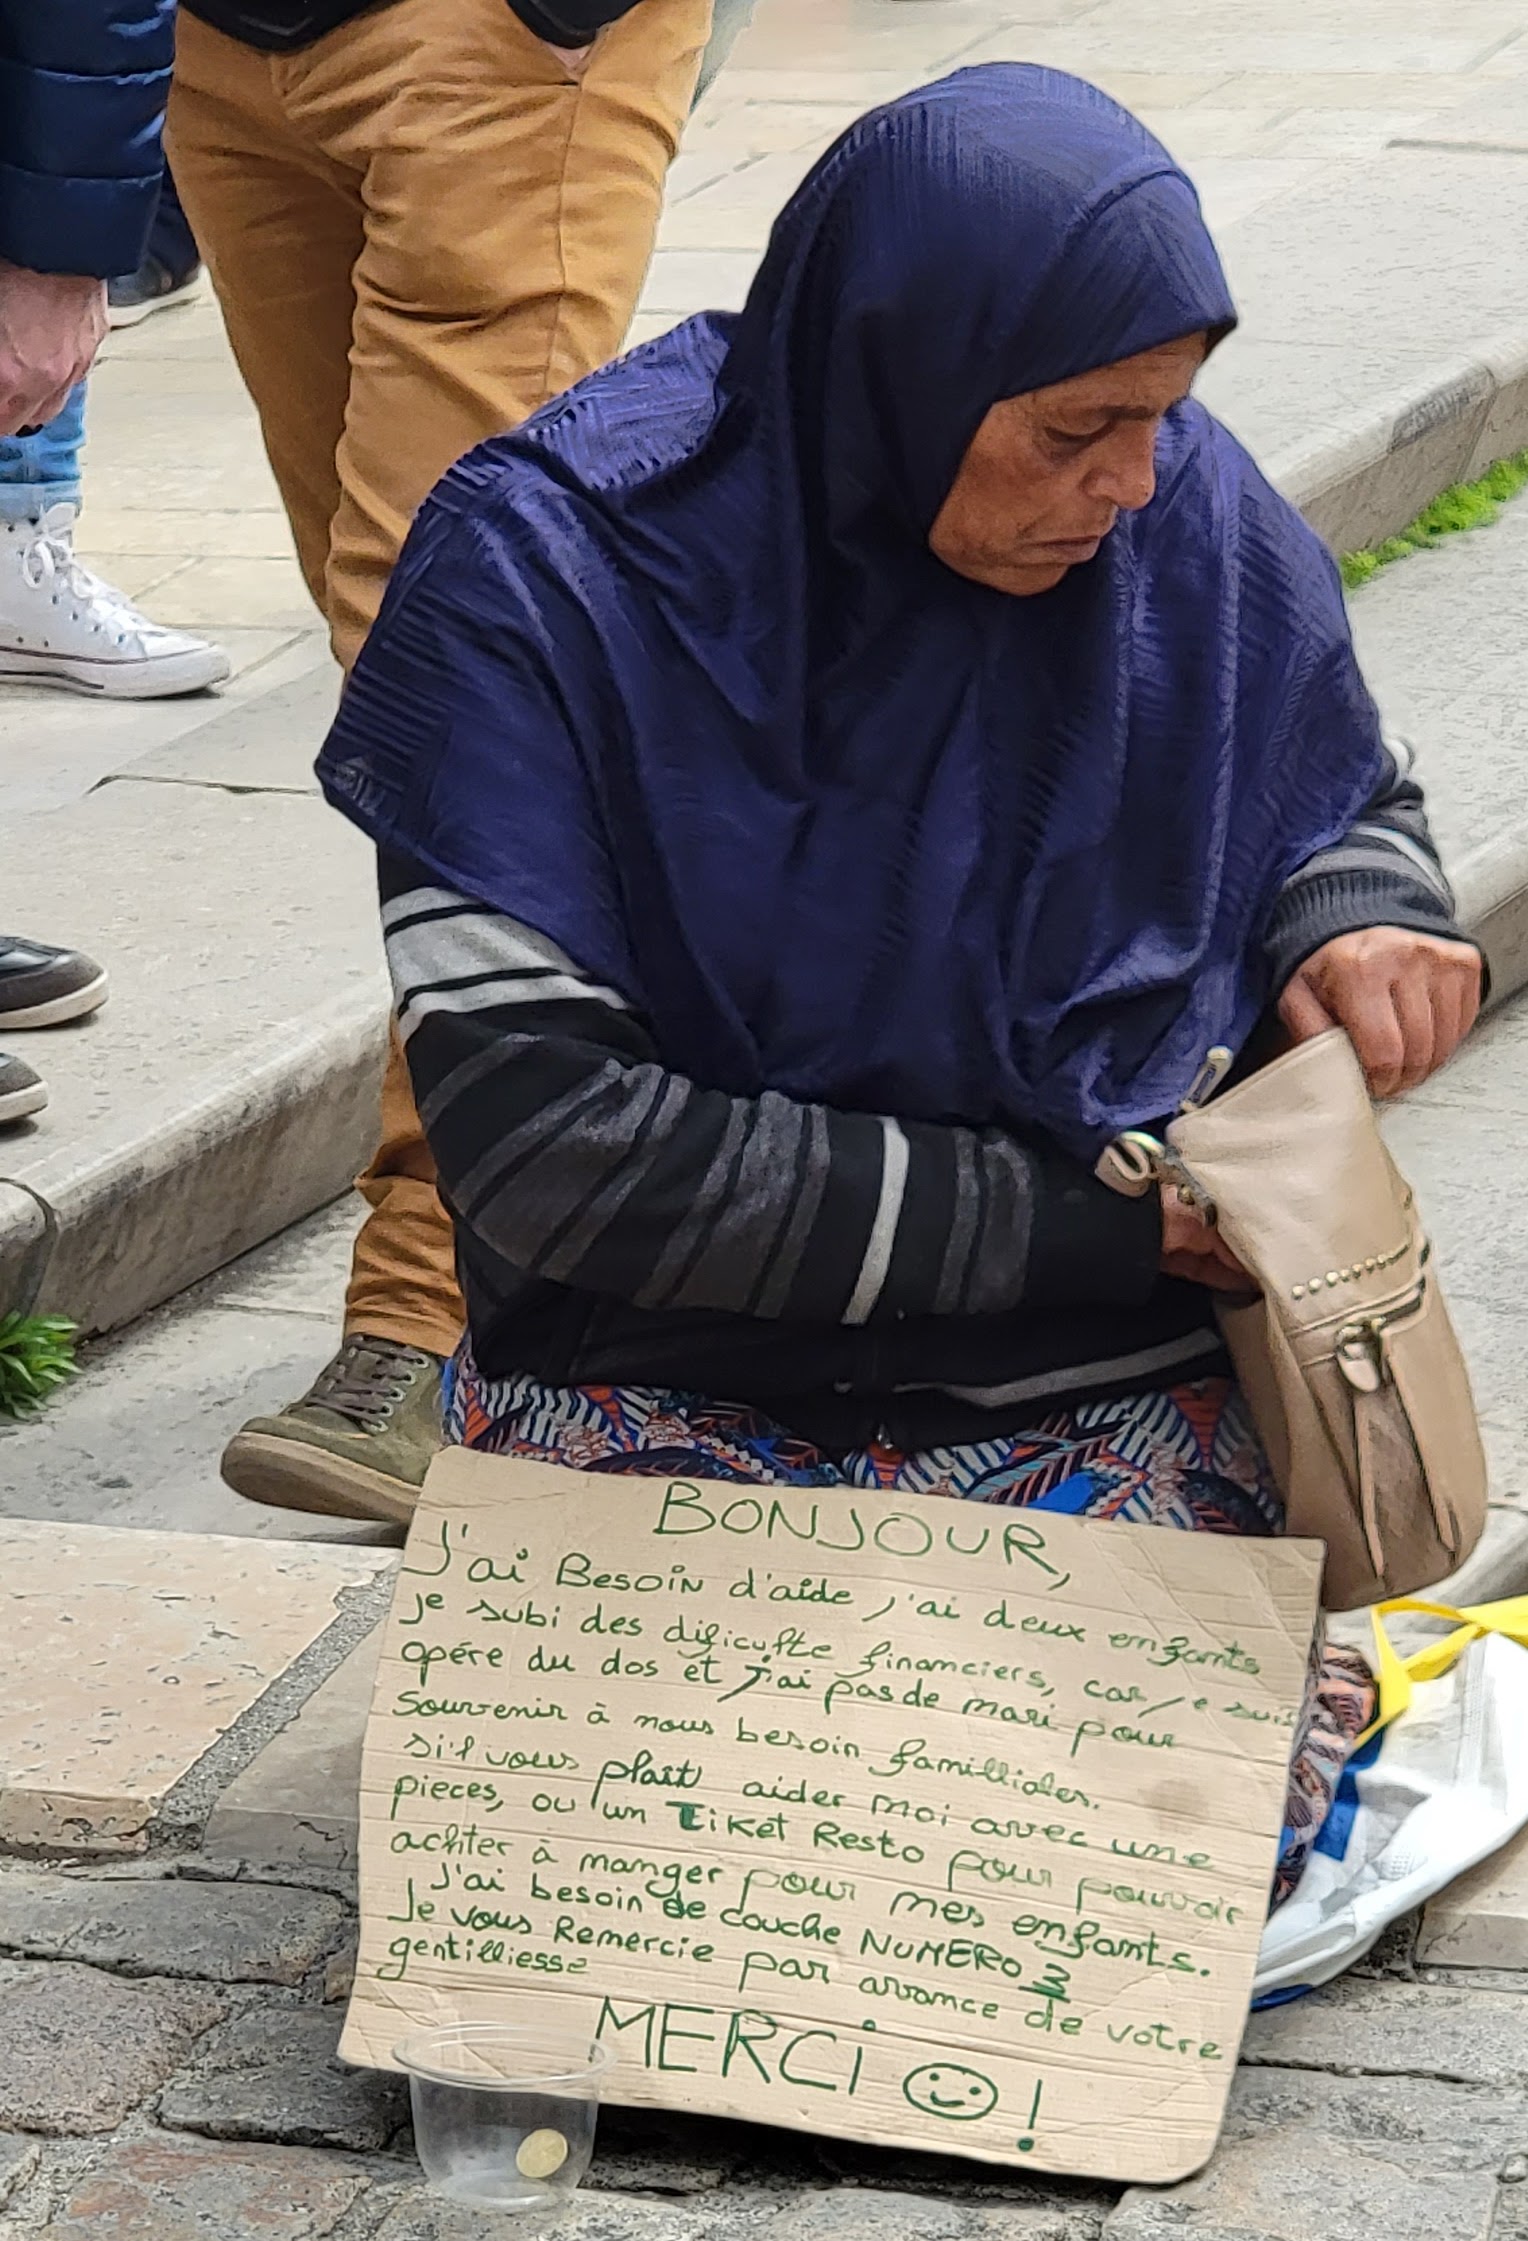 BONJOUR,
J'ai Besoin d'aide j'ai deux enfants
je subi des dificulte financiers, car je suis
opére du dos et j'ai pas de mari pour
souvenir à nous besoin familliales.
si'l vous plaît aider moi avec une
pieces, ou un Tiket Resto pour pouvoir
achter à manger pour mes enfants.
J'ai besoin de couche NUMERO 3
Je vous Remercie par avance de votre
gentilliesse
MERCI ☺ !